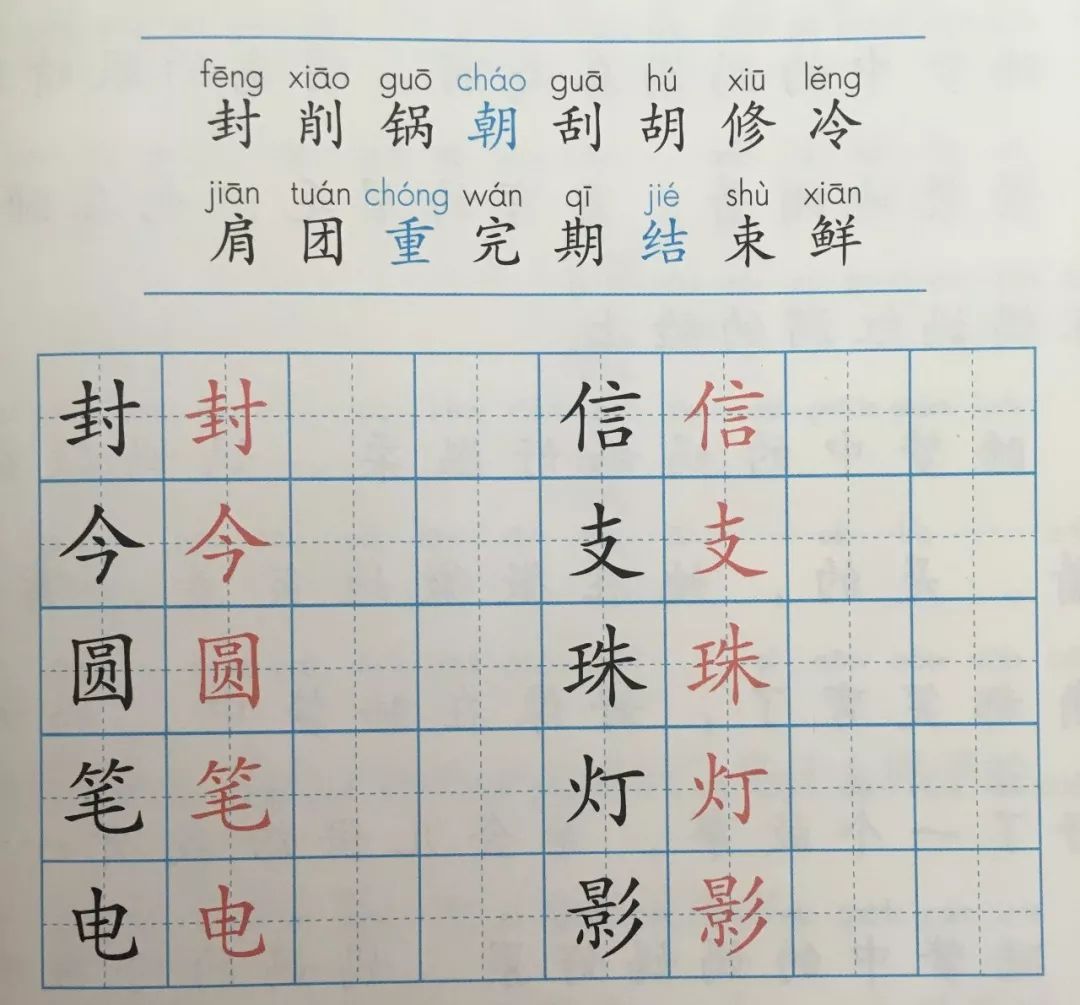 fēng xiāo guō cháo guā hú xiū lěng
封 削 锅 朝 刮 胡 修 冷
jiān tuán chóng wán qī jié shù xiān
肩 团 重 完 期 结 束 鲜
封 封 信 信
今 今 支 支
圆 圆 珠 珠
笔 笔 灯 灯
电 电 影 影